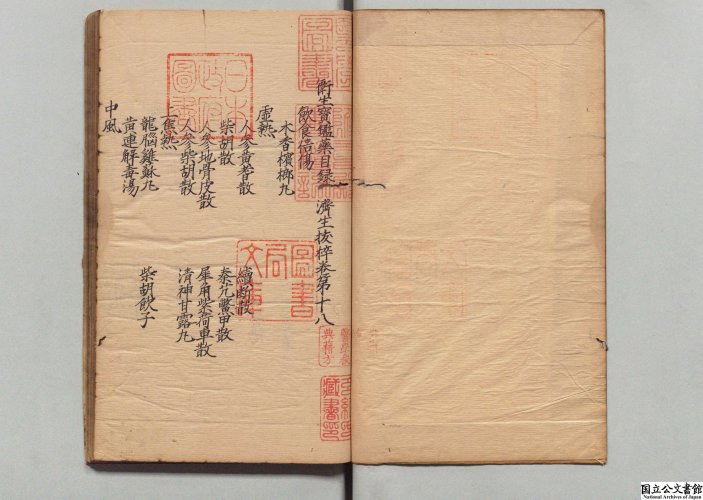 衛生寶鑑藥目録　濟生拔粹卷第十八
飲食倍傷
木香檳榔丸　續断散
虛熱
人參黄耆散　秦艽鱉甲散
柴胡散　犀角紫荷車散
人參地骨皮散　清神甘露丸
人參柴胡散
上焦熱
龍腦雞蘇丸　柴胡飲子
黄連解毒湯
中風
日本
政府
圖書
圖書
局
文庫
國立公文書館
National Archives of Japan